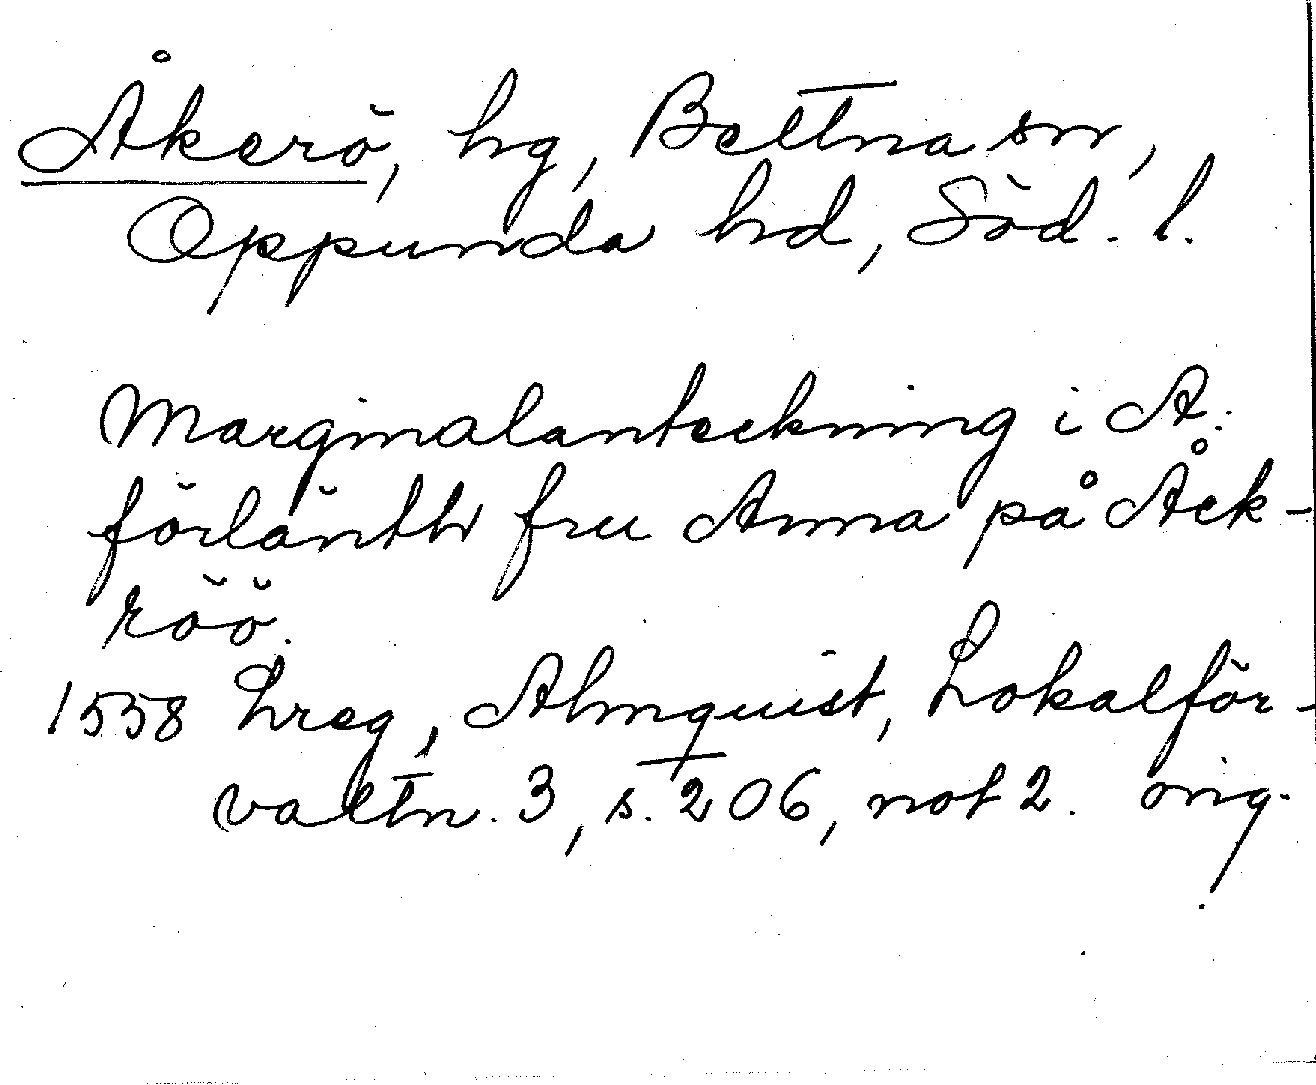 Åkerö, hg, Bettna sn,
Oppunda hd, Söd. l.
Marginalanteckning i A:
förlänth fru Anna på Åck-
röö.
1558 Lreg, Almquist, Lokalför-
valtn. 3, s. 206, not 2. orig.